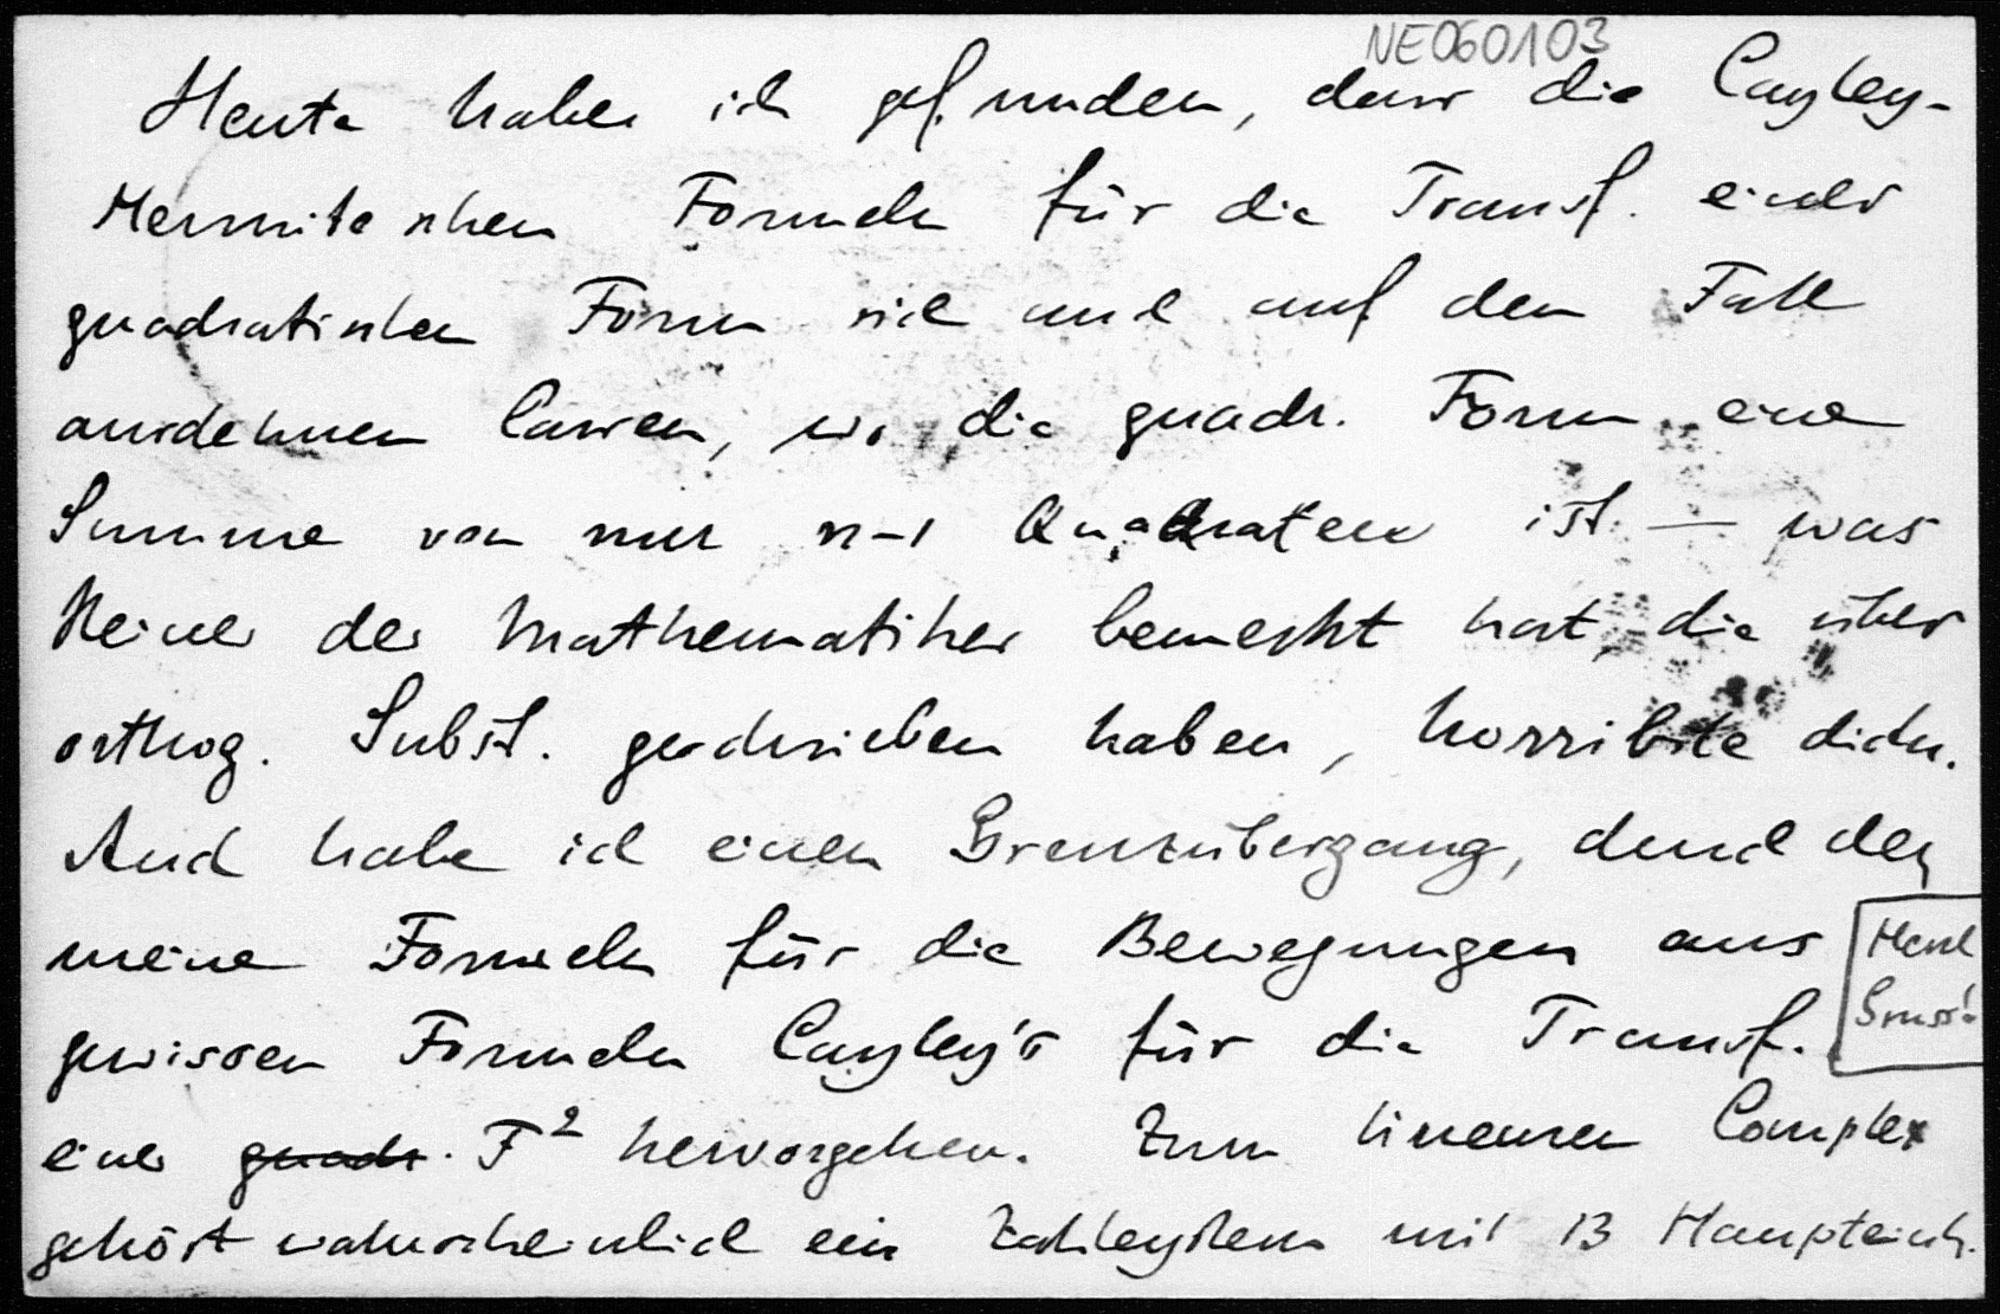 NE060103
Heute habe ich gefunden, dass die Cayley-
Hermiteschen Formeln für die Transf. einer
quadratischen Form sich auch auf den Fall
ausdehnen lassen, wo die quadr. Form eine
Summe von nur n-1 Quadraten ist — was
Keiner der Mathematiker bemerkt hat, die über
orthog. Subst. geschrieben haben, horribile dictu.
Auch habe ich einen Grenzübergang, durch den
meine Formeln für die Bewegungen aus
gewissen Formeln Cayley's für die Transf.
einer quadr. F² hervorgehen. Zum linearen Complex
gehört wahrscheinlich ein Zahlsystem mit 13 Haupteinh.
Herzl
Gruss!